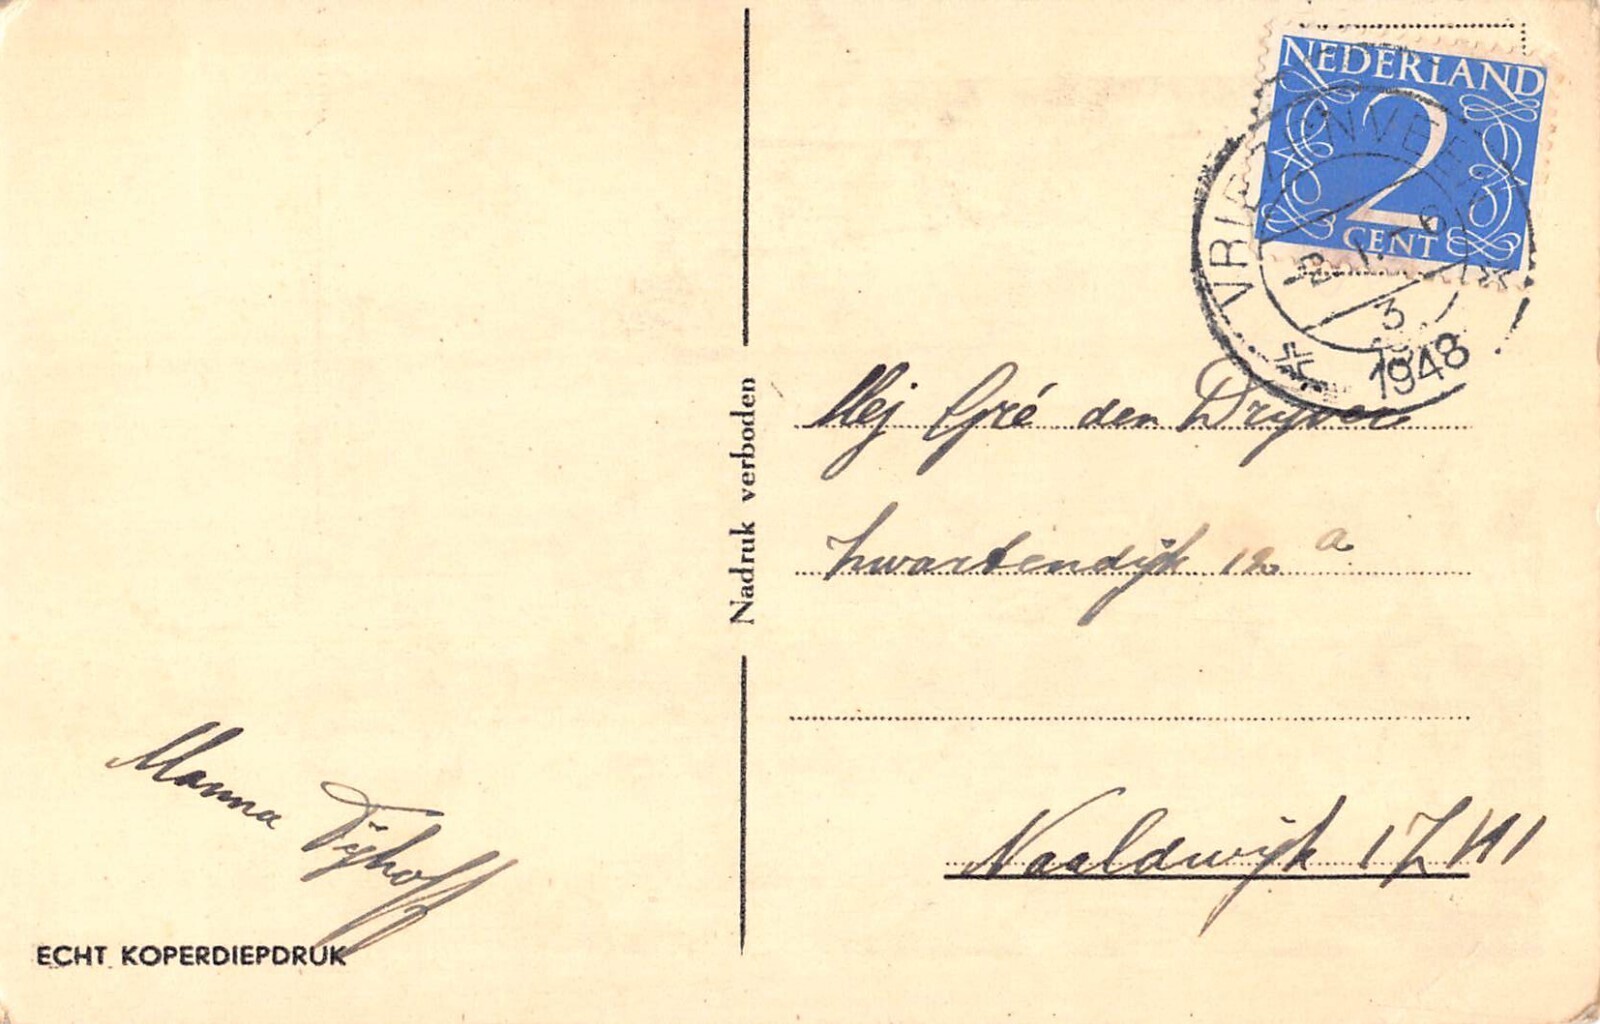 NEDERLAND
2
CENT
VRIEZENVEEN
3
1948
Nadruk verboden
Mej Gré den Dryver
Zwartendijk 12 a
Naaldwijk
Manna Tijhoff
ECHT KOPERDIEPDRUK